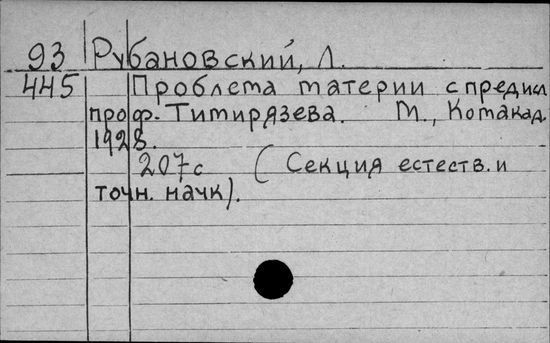 93 Рубановский, Л.
445 Проблема материи с предисл
проф. Тимирязева. М., Комакад.
1928.
207 с (Секция естеств. и
точн. наук).